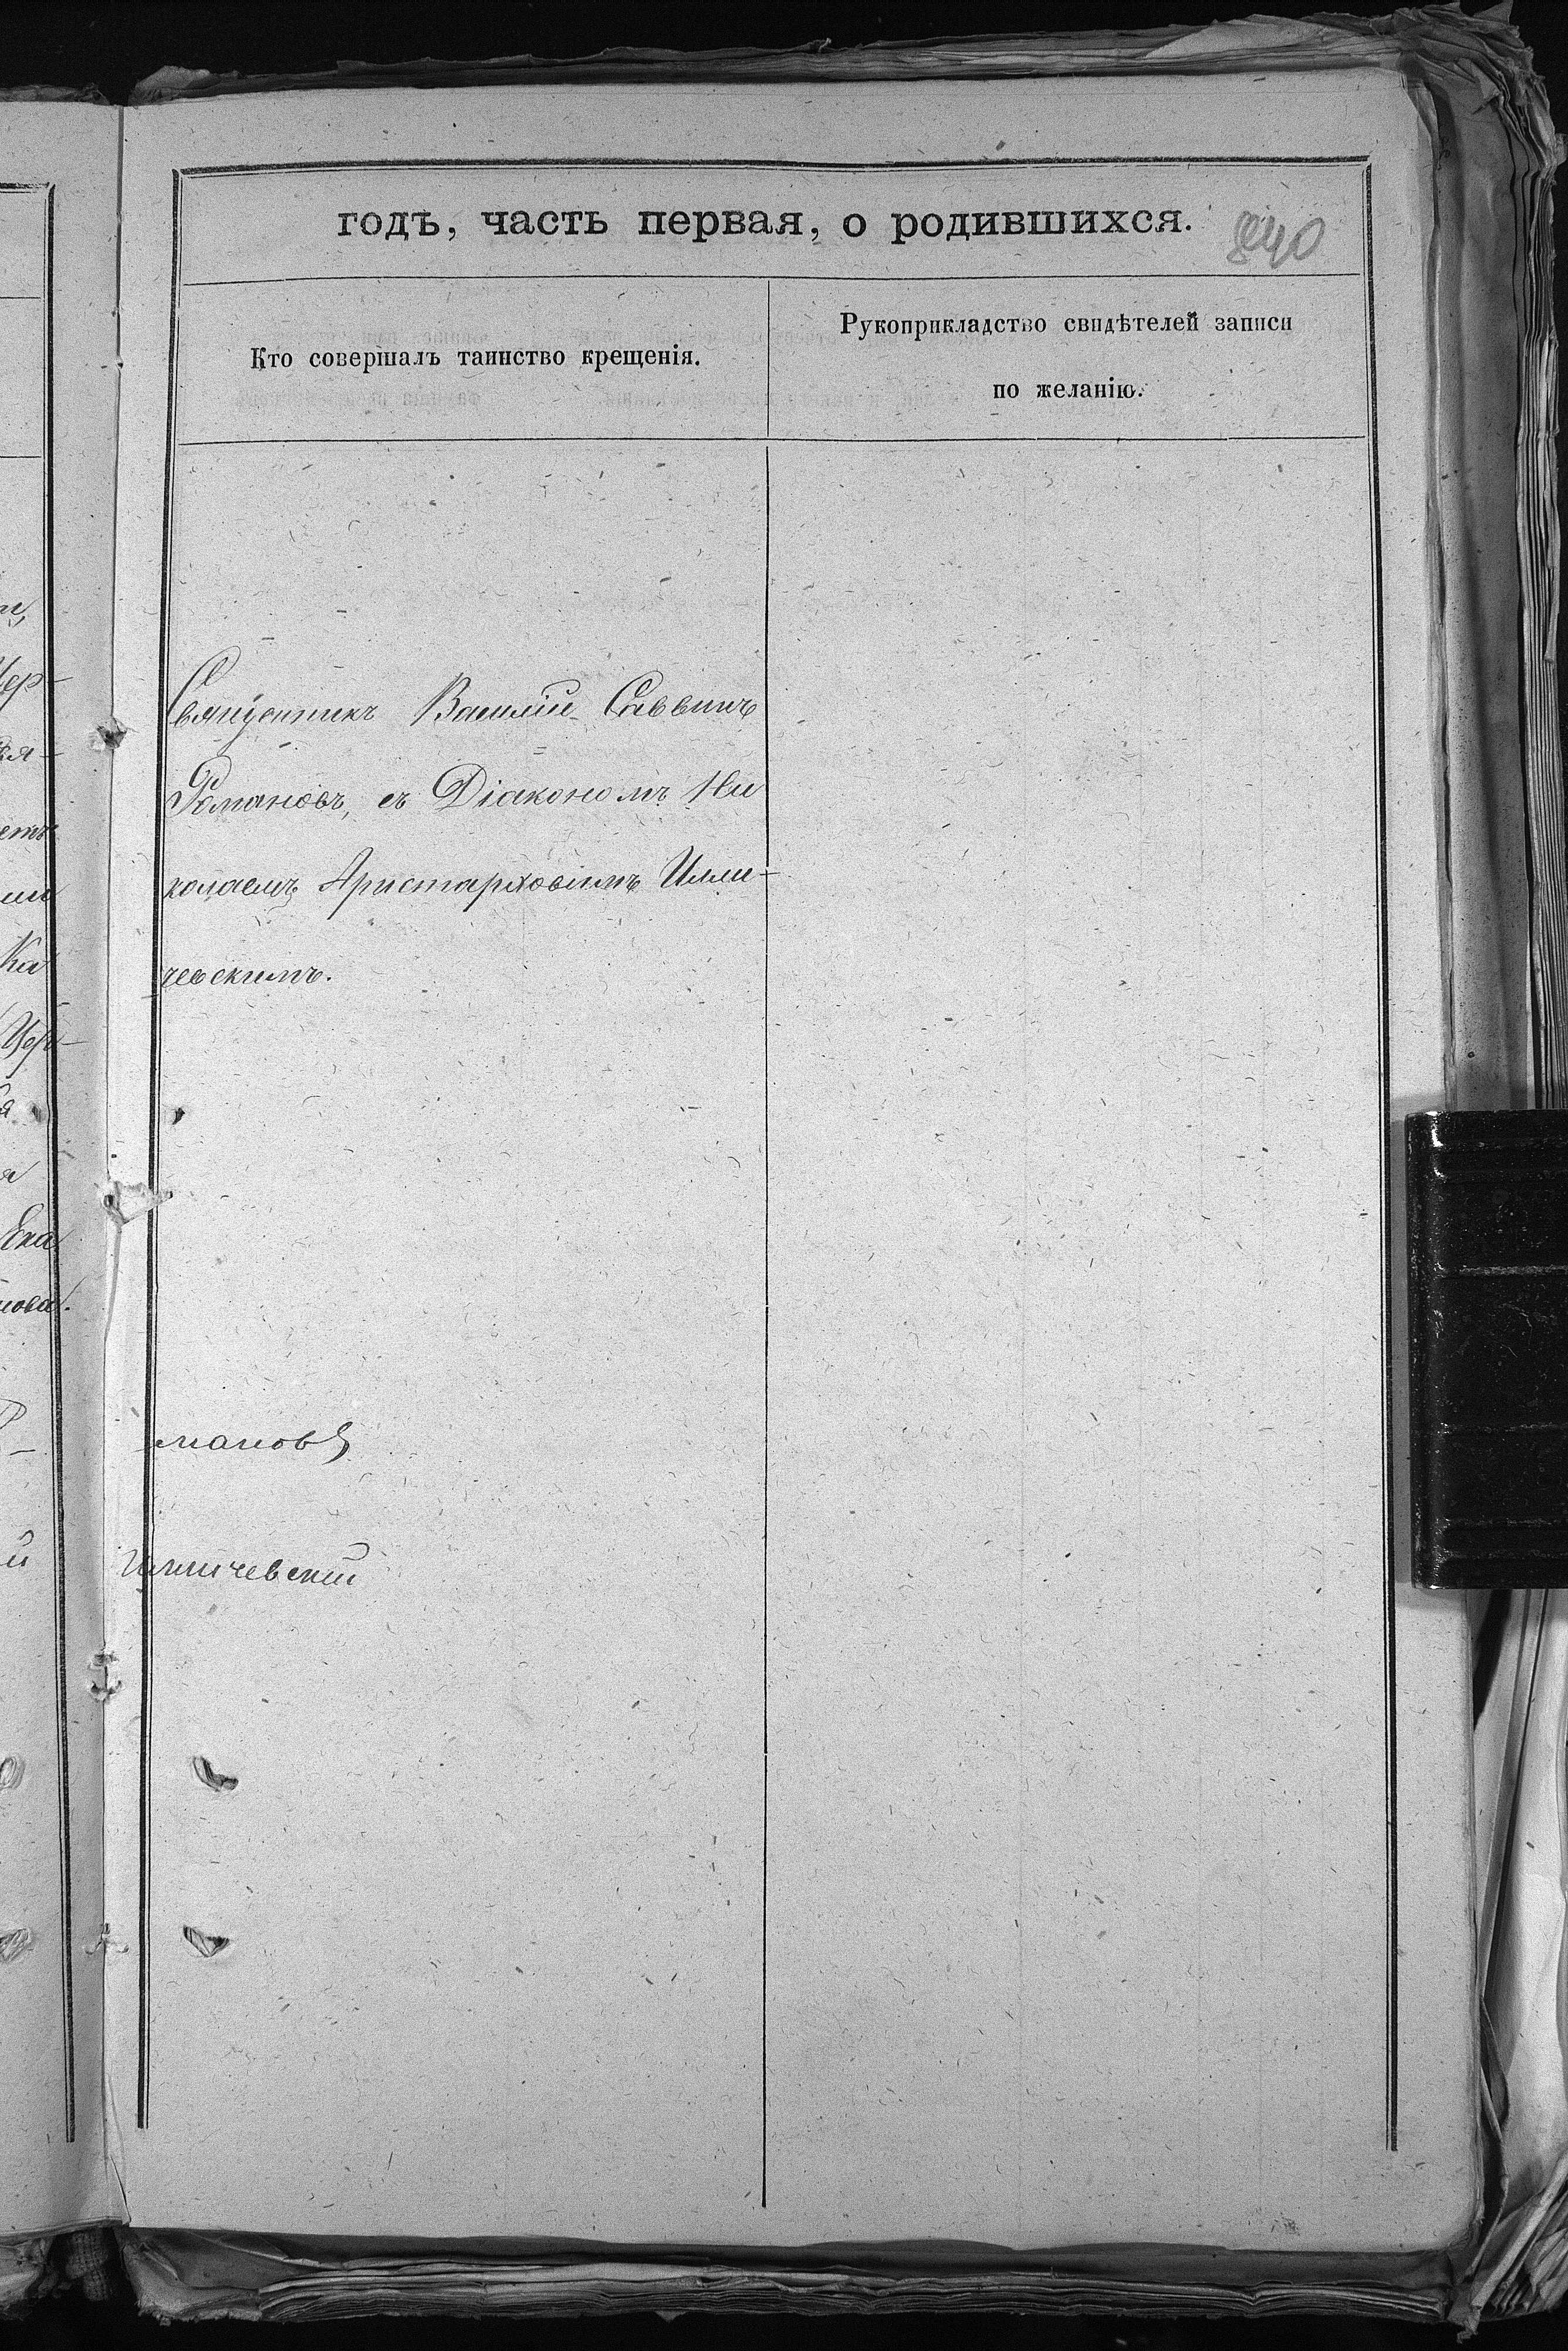 годъ, часть первая, о родившихся.
Кто совершалъ таинство крещенія.
Рукоприкладство свидѣтелей записи
по желанію.
Священникъ Василій Саввинъ
Романовъ, съ Діакономъ Ни
колаемъ Аристарховымъ Илли-
чевскимъ.
мановъ
Илличевскій
Ка
Ека
нова.